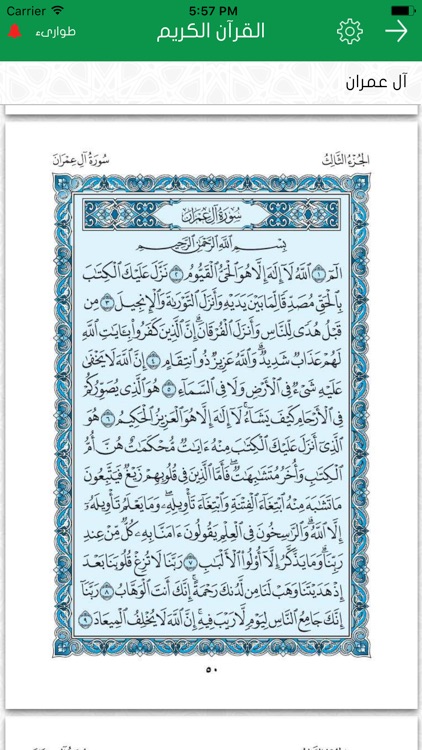 Carrier 5:57 PM
طوارىء القرآن الكريم
آل عمران
سُورَةُ آلِ عِمْرَانَ الجُزْءُ الثَّالِثُ
سُورَةُ آلِ عِمْرَانَ
بِسْمِ ٱللَّهِ ٱلرَّحْمَٰنِ ٱلرَّحِيمِ
الٓمٓ ١ ٱللَّهُ لَآ إِلَٰهَ إِلَّا هُوَ ٱلْحَىُّ ٱلْقَيُّومُ ٢ نَزَّلَ عَلَيْكَ ٱلْكِتَٰبَ
بِٱلْحَقِّ مُصَدِّقًا لِّمَا بَيْنَ يَدَيْهِ وَأَنزَلَ ٱلتَّوْرَىٰةَ وَٱلْإِنجِيلَ ٣ مِن
قَبْلُ هُدًى لِّلنَّاسِ وَأَنزَلَ ٱلْفُرْقَانَ إِنَّ ٱلَّذِينَ كَفَرُوا۟ بِـَٔايَٰتِ ٱللَّهِ
لَهُمْ عَذَابٌ شَدِيدٌ وَٱللَّهُ عَزِيزٌ ذُو ٱنتِقَامٍ ٤ إِنَّ ٱللَّهَ لَا يَخْفَىٰ
عَلَيْهِ شَىْءٌ فِى ٱلْأَرْضِ وَلَا فِى ٱلسَّمَآءِ ٥ هُوَ ٱلَّذِى يُصَوِّرُكُمْ
فِى ٱلْأَرْحَامِ كَيْفَ يَشَآءُ لَآ إِلَٰهَ إِلَّا هُوَ ٱلْعَزِيزُ ٱلْحَكِيمُ ٦ هُوَ
ٱلَّذِىٓ أَنزَلَ عَلَيْكَ ٱلْكِتَٰبَ مِنْهُ ءَايَٰتٌ مُّحْكَمَٰتٌ هُنَّ أُمُّ
ٱلْكِتَٰبِ وَأُخَرُ مُتَشَٰبِهَٰتٌ فَأَمَّا ٱلَّذِينَ فِى قُلُوبِهِمْ زَيْغٌ فَيَتَّبِعُونَ
مَا تَشَٰبَهَ مِنْهُ ٱبْتِغَآءَ ٱلْفِتْنَةِ وَٱبْتِغَآءَ تَأْوِيلِهِۦ وَمَا يَعْلَمُ تَأْوِيلَهُۥٓ
إِلَّا ٱللَّهُ وَٱلرَّٰسِخُونَ فِى ٱلْعِلْمِ يَقُولُونَ ءَامَنَّا بِهِۦ كُلٌّ مِّنْ عِندِ
رَبِّنَا وَمَا يَذَّكَّرُ إِلَّآ أُو۟لُوا۟ ٱلْأَلْبَٰبِ ٧ رَبَّنَا لَا تُزِغْ قُلُوبَنَا بَعْدَ
إِذْ هَدَيْتَنَا وَهَبْ لَنَا مِن لَّدُنكَ رَحْمَةً إِنَّكَ أَنتَ ٱلْوَهَّابُ ٨ رَبَّنَآ
إِنَّكَ جَامِعُ ٱلنَّاسِ لِيَوْمٍ لَّا رَيْبَ فِيهِ إِنَّ ٱللَّهَ لَا يُخْلِفُ ٱلْمِيعَادَ ٩
٥٠